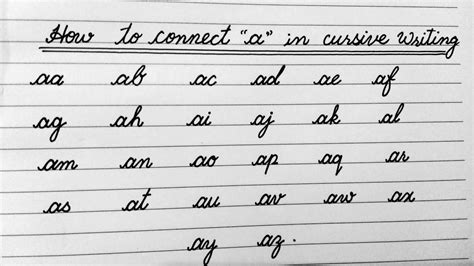 How to connect "a" in cursive writing
aa ab ac ad ae af
ag ah ai aj ak al
am an ao ap aq ar
as at au av aw ax
ay az.